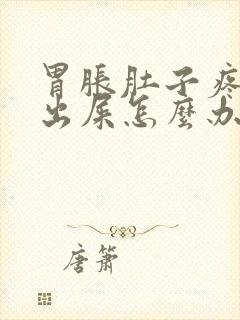 胃脹肚子疼
出屎怎麼办
唐箫